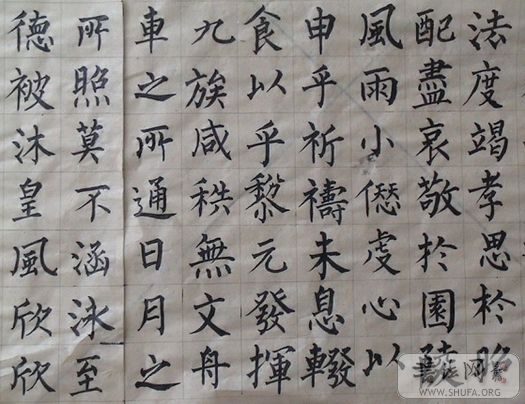 法度竭孝思於昭
配盡哀敬於園陵
風雨小僁虔心以
申乎祈禱未息輟
食以乎黎元發揮
九族咸秩無文舟
車之所通日月之
所照莫不涵泳至
德被沐皇風欣欣
WWW.SHUFA.ORG